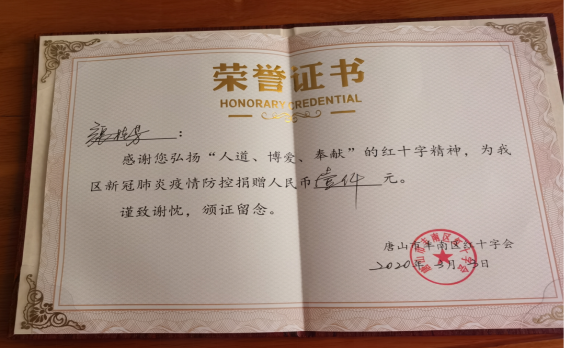 荣誉证书
HONORARY CREDENTIAL
：
感谢您弘扬“人道、博爱、奉献”的红十字精神，为我
区新冠肺炎疫情防控捐赠人民币壹仟元。
谨致谢忱，颁证留念。
唐山市丰南区红十字会
2020年3月2日